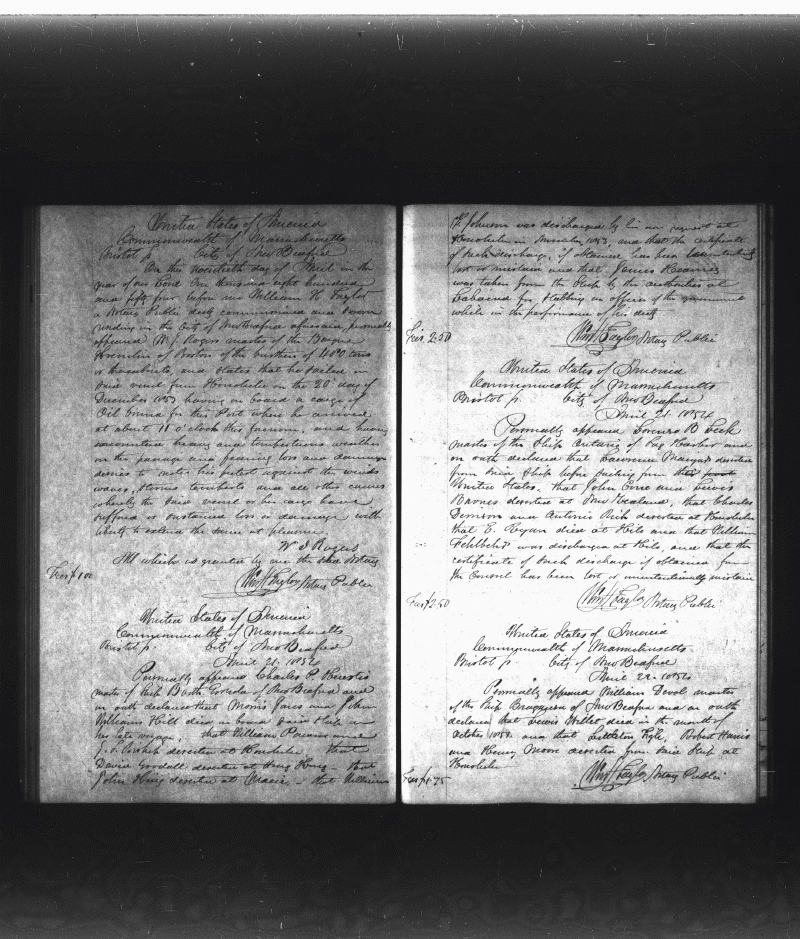 United States of America
Commonwealth of Massachusetts
Bristol ss. City of New Bedford
On the twentieth day of April in the
year of our Lord One thousand eight hundred
and fifty four before me William H. Taylor
a Notary Public duly commissioned and sworn
residing in the City of New Bedford aforesaid, personally
appeared W. J. Rogers master of the Barque
of Boston of the burthen of 400 tons
or thereabouts, and states that he sailed in
said vessel from Honolulu on the 20th day of
December 1853 having on board a cargo of
Oil bound for this Port where he arrived
at about 11 o'clock this forenoon, and having
encountered heavy and tempestuous weather
on the passage and fearing loss and damage
desires to enter his protest against the winds
waves, storms tempests and all other causes
whereby the said vessel or her cargo have
suffered or sustained loss or damage with
liberty to extend the same at pleasure.
W J Rogers
All which is granted by me the said Notary
Fees $1.00
Wm H Taylor Notary Public
United States of America
Commonwealth of Massachusetts
Bristol ss. City of New Bedford
April 21. 1854
Personally appeared Charles P.
master of Ship of New Bedford and
on oath declares that Morris and John
Williams Hill died on board said Ship on
her late voyage, that William and
deserted at Honolulu that
David Goodall deserted at Hong Kong - that
John King deserted at - that William
H. Johnson was discharged by his own request at
Honolulu in 1853, and that the certificate
of such discharge, if obtained has been
lost or mislaid and that James
was taken from the Ship by the authorities at
Lahaina for stabbing an officer of the government
while in the performance of his duty
Fees 2.50
Wm H Taylor Notary Public
United States of America
Commonwealth of Massachusetts
Bristol ss. City of New Bedford
April 21. 1854
Personally appeared B. Peck
master of the Ship of Sag Harbor and
on oath declared that Lawrence deserted
from said Ship before sailing from
United States, that John and Lewis
Barnes deserted at New Zealand, that Charles
and Antonio deserted at Honolulu
that E. Ryan died at Hilo and that William
was discharged at Hilo, and that the
certificate of such discharge if obtained from
the Consul has been lost or unintentionally mislaid
Fees $2.50
Wm H Taylor Notary Public
United States of America
Commonwealth of Massachusetts
Bristol ss. City of New Bedford
April 22. 1854
Personally appeared William Devol master
of the Ship of New Bedford and on oath
declared that Lewis died in the month of
October and that Robert Harris
and Henry Moore deserted from said Ship at
Honolulu
Fees $1.75
Wm H Taylor Notary Public